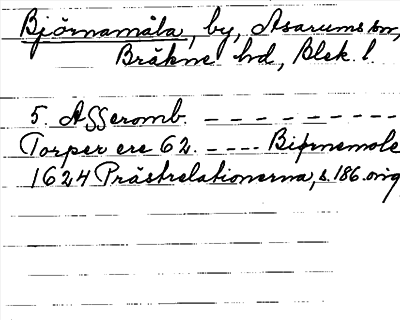 Björnamåla, by, Asarums sn,
Bräkne hd, Blek. l.
5. Asseromb. – – – – – – – – –
Torper ere 62. – – – – Biørnemole
1624 Prästrelationerna, s. 186. orig